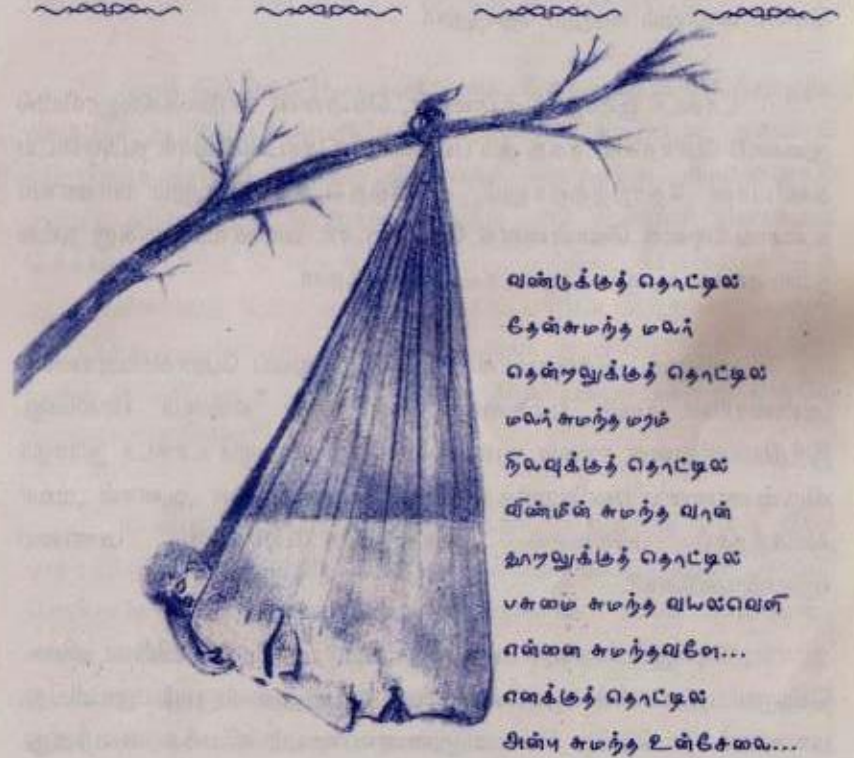 வண்டுக்குத் தொட்டில்
தேன்சுமந்த மலர்
தென்றலுக்குத் தொட்டில்
மலர் சுமந்த மரம்
நிலவுக்குத் தொட்டில்
விண்மீன் சுமந்த வான்
தூறலுக்குத் தொட்டில்
பசுமை சுமந்த வயல்வெளி
என்னை சுமந்தவளே...
எனக்குத் தொட்டில்
அன்பு சுமந்த உன்சேலை...